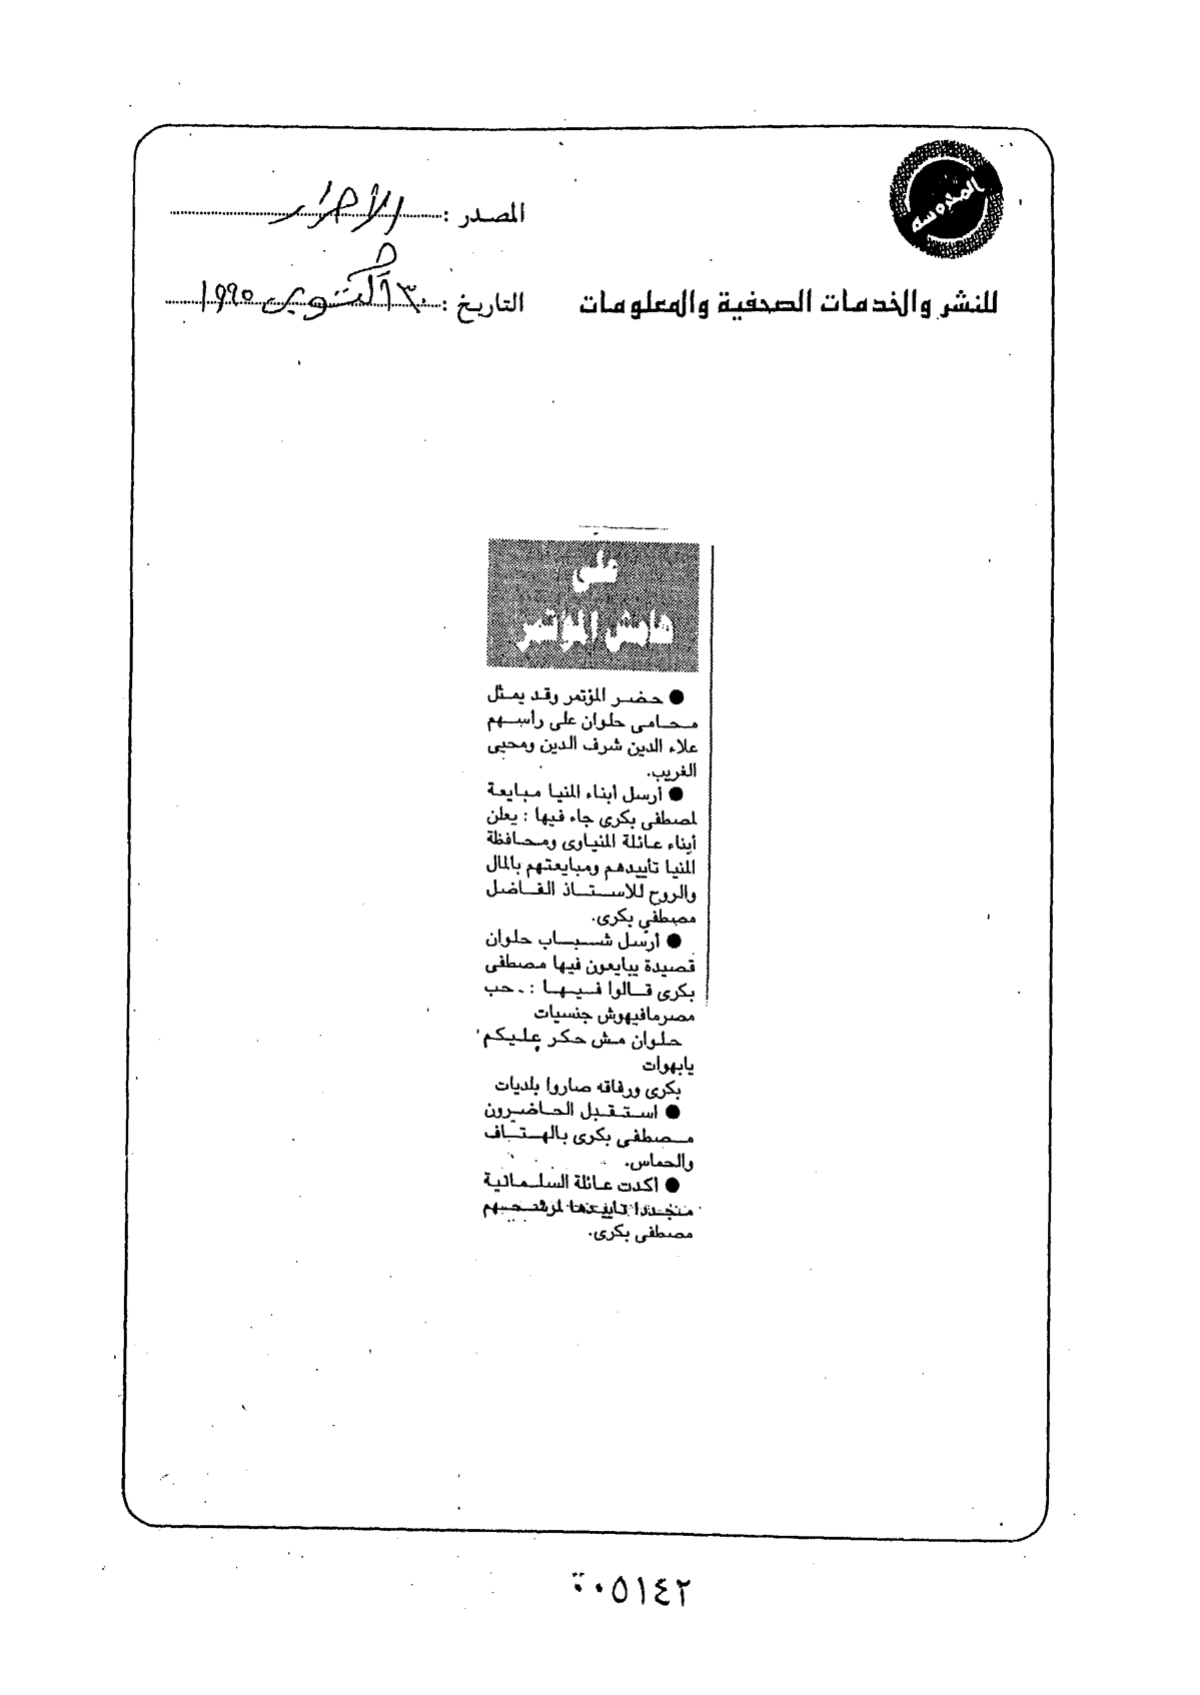 المدوسه
المصدر : الأحرار
للنشر والخدمات الصحفية والمعلومات
التاريخ : ٣٠ أكتوبر ١٩٩٥
على
هامش المؤتمر
● حضر المؤتمر وقد يمثل
محامى حلوان على رأسهم
علاء الدين شرف الدين ومحيى
الغريب.
● أرسل أبناء المنيا مبايعة
لمصطفى بكرى جاء فيها : يعلن
أبناء عائلة المنياوى ومحافظة
المنيا تأييدهم ومبايعتهم بالمال
والروح للاستاذ الفاضل
مصطفي بكرى.
● أرسل شباب حلوان
قصيدة يبايعون فيها مصطفى
بكرى قالوا فيها : حب
مصرمافيهوش جنسيات
حلوان مش حكر عليكم
يابهوات
بكرى ورفاقه صاروا بلديات
● استقبل الحاضرون
مصطفى بكرى بالهتاف
والحماس.
● اكدت عائلة السلمانية
مجددا تأييدها لمرشحهم
مصطفى بكرى.
٠٠٥١٤٢